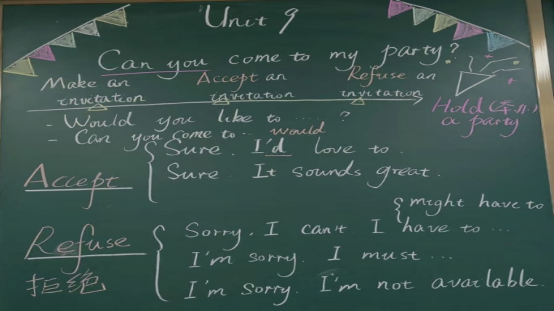 Unit 9
Can you come to my party?
Make an invitation
Accept an invitation
Refuse an invitation
Hold (举办) a party
- Would you like to ...... ?
- Can you come to ...
would
Accept
Sure. I'd love to.
Sure It sounds great.
Refuse
拒绝
might have to
Sorry. I can't I have to ...
I'm sorry. I must ...
I'm Sorry. I'm not available.